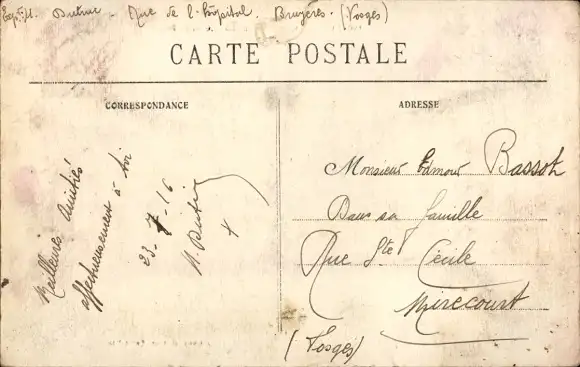 Exp: M. Dutruc - Rue de l'hôpital. Bruyères. (Vosges)
CARTE POSTALE
CORRESPONDANCE
Meilleures amitiés
affectueusement à toi
23-7-16
M.
ADRESSE
Monsieur Edmour Bassot
Dans sa famille
Rue Ste Cécile
Mirecourt
(Vosges)